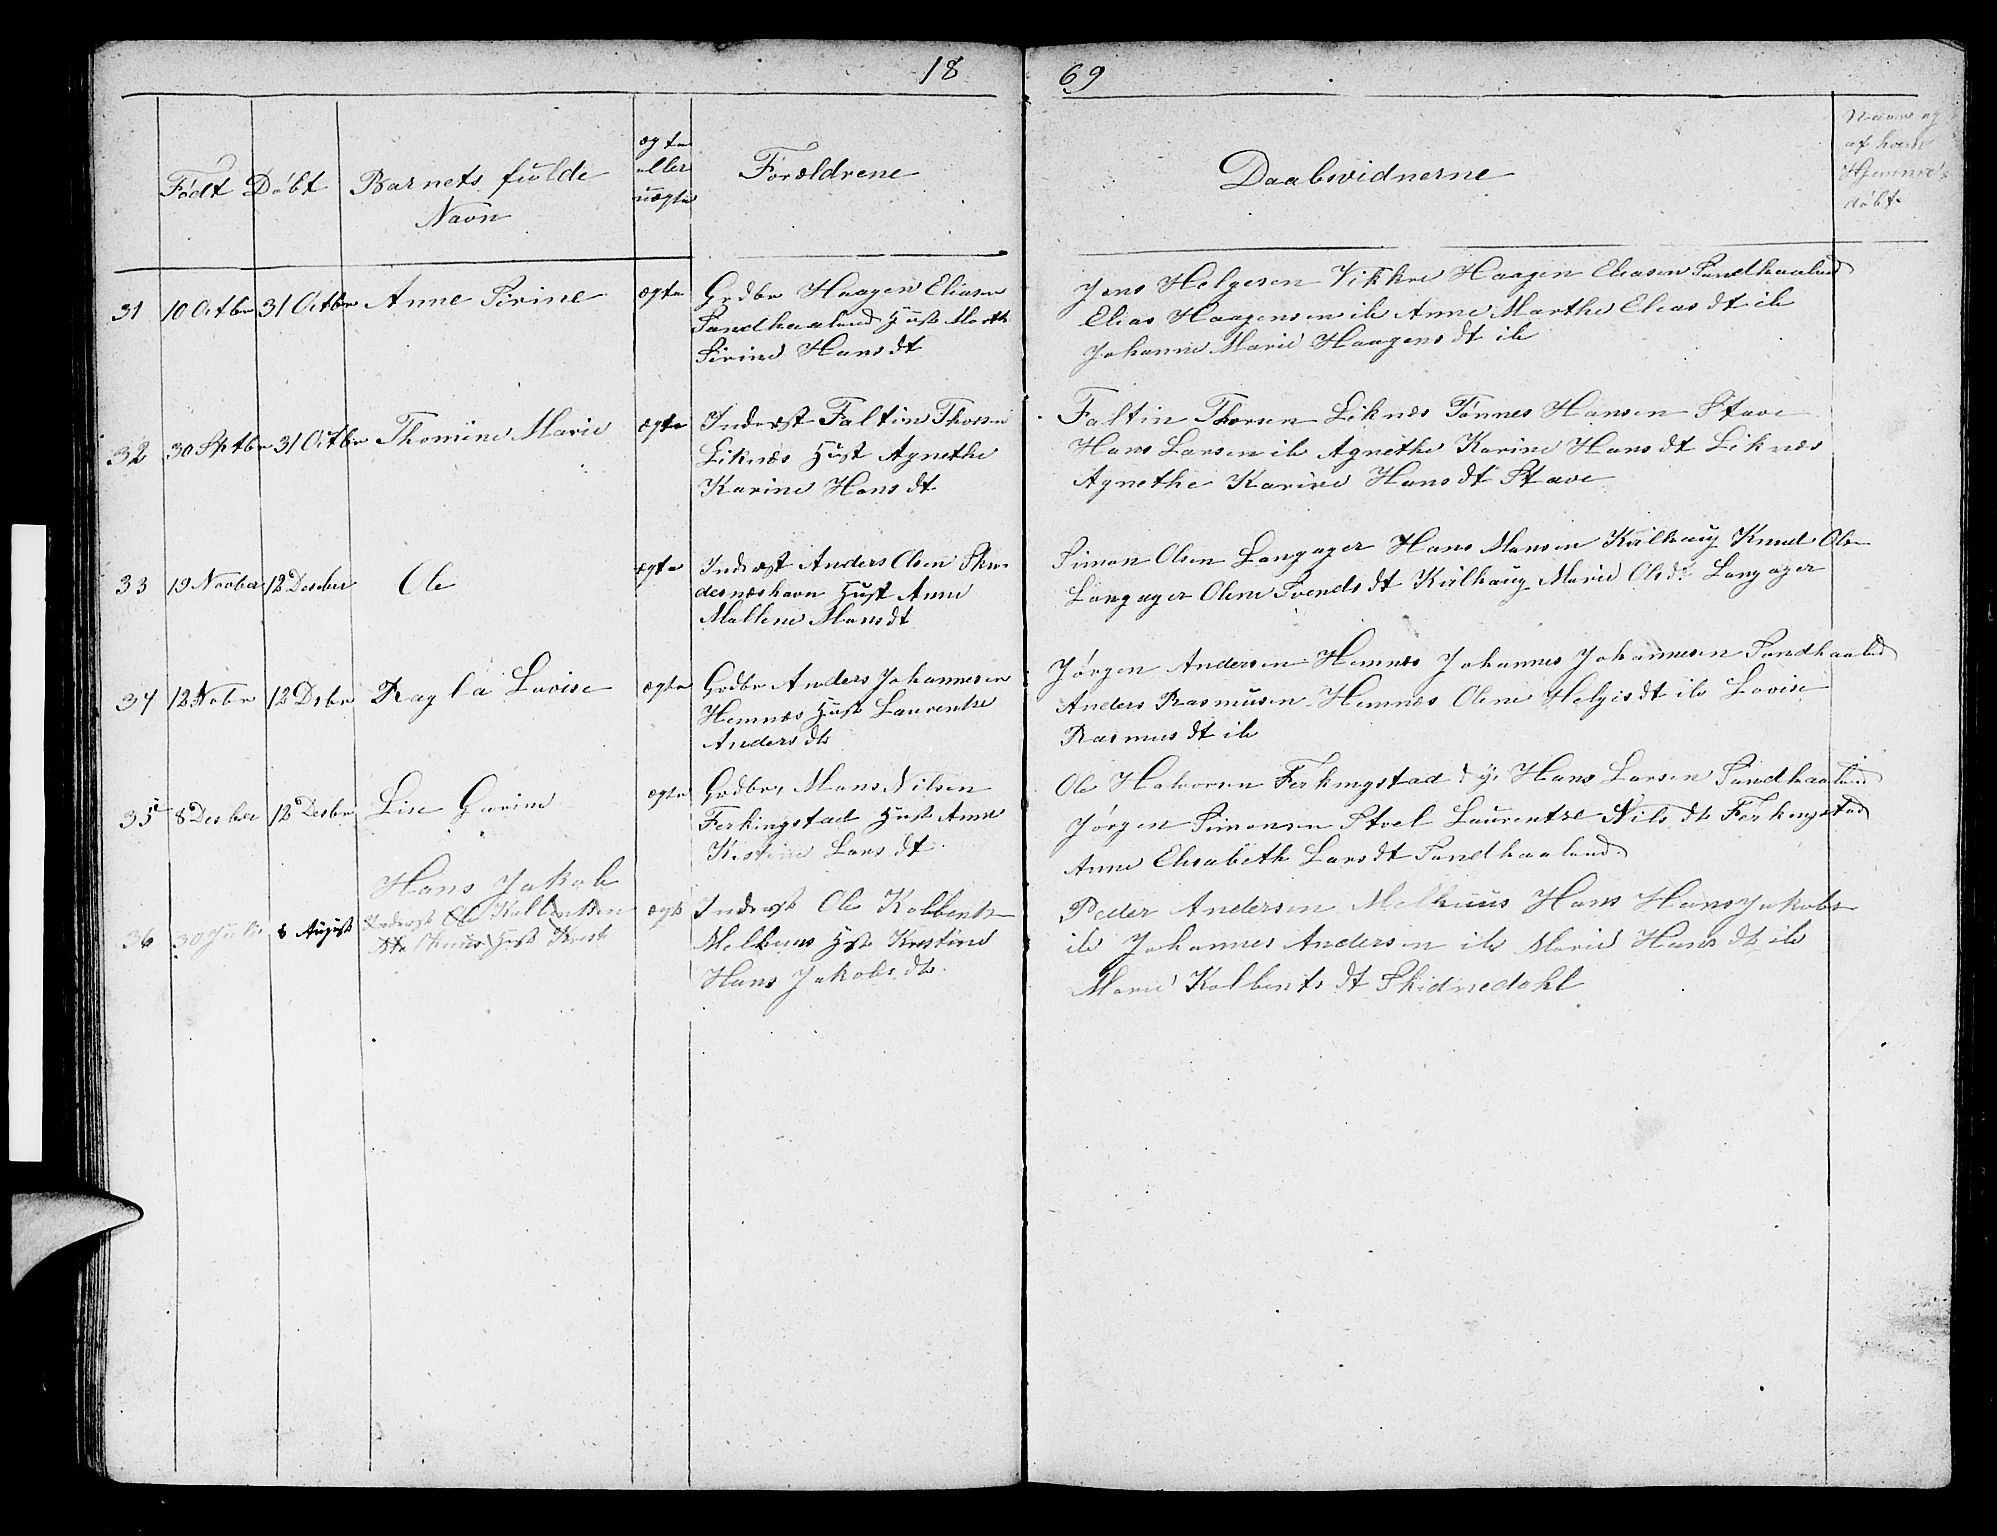 18 69
Født Døbt Barnets fulde Navn ægte eller uægte Forældrene Daabsvidnerne Naar og af hvem Hjemme døbt
31 10 Octbr 31 Octbr Anne Serine ægte Grdbr Haagen Eliasen
Sandhaaland Hust Marth
Serine Hansdt
Jens Helgesen Vikkre Haagen Eliasen Sandhaaland
Elias Haagensen ib Anne Marthe Eliasdt ib
Johanne Marie Haagensdt ib
32 30 Sptbr 31 Octbr Thomine Marie ægte Inderst Faltin Thorsen
Liknæs Hust Agnethe
Karine Hansdt
Faltin Thorsen Liknæs Tønnes Hansen Stave
Hans Larsen ib Agnethe Karine Hansdt Liknæs
Agnethe Karine Hansdt Stave
33 19 Novber 12 Desber Ole ægte Inderst Anders Olsen Sku-
desneshavn Hust Anne
Mallene Monsdt
Simon Olsen Langager Hans Monsen Kirlhaug Knud Olsen
Langager Olene Svendsdt Kirlhaug Marie Olsdt Langager
34 12 Nobr 12 Dsbr Ragla Lovise ægte Grdbr Anders Johannesen
Hemnæs Hust Laurentse
Andersdt
Jørgen Andersen Hemnæs Johannes Johannesen Sandhaaland
Anders Rasmusen Hemnæs Olene Helgesdt ib Lovise
Rasmusdt ib
35 8 Desber 12 Desbr Lise Gurine ægte Grdbr Mons Nilsen
Ferkingstad Hust Anne
Kistine Larsdt
Ole Halvorsen Ferkingstad Hans Larsen Sandhaaland
Jørgen Simonsen Stoel Laurentse Nilsdt Ferkingstad
Anne Elisabeth Larsdt Sandhaaland
36 30 Juli 8 August Hans Jakob
Inderst Ole Kolbentsen
Hust Krist
ægte Inderst Ole Kolbents
Melhuus Hst Kristine
Hans Jakobsdt
Peder Andersen Melhuus Hans Hans Jakobs
ib Johannes Andersen ib Marie Hansdt ib
Marie Kolbentsdt Skidnedahl